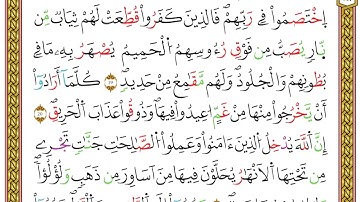 اِ۪خْتَصَمُواْ فِے رَبِّهِمْ فَالذِينَ كَفَرُواْ قُطِّعَتْ لَهُمْ ثِيَابٌ مِّن
نّ۪ارٖ يُصَبُّ مِن فَوْقِ رُءُوسِهِمُ الْحَمِيمُ يُصْهَرُ بِهِۦ مَا فِے
بُطُونِهِمْ وَالْجُلُودُ وَلَهُم مَّقَٰمِعُ مِنْ حَدِيدٖ كُلَّمَا أَرَادُواْ
أَنْ يَّخْرُجُواْ مِنْهَا مِنْ غَمٍّ ا۟عِيدُواْ فِيهَا وَذُوقُواْ عَذَابَ الْحَرِيقِ
إِنَّ اَ۬للَّهَ يُدْخِلُ الذِينَ ءَامَنُواْ وَعَمِلُواْ الصَّٰلِحَٰتِ جَنَّٰتٖ تَجْرِے
مِن تَحْتِهَا اَ۬لَانْهَٰرُ يُحَلَّوْنَ فِيهَا مِنَ اَسَاوِرَ مِن ذَهَبٖ وَلُؤْلُؤاٗ